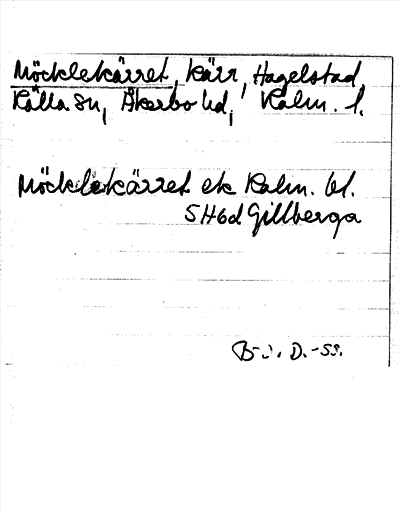 Möcklekärret, kärr, Hagelstad,
Källa sn, Åkerbo hd, Kalm. l.
Möcklekärret ek Kalm. bl.
5H6d Gillberga
D.-53.